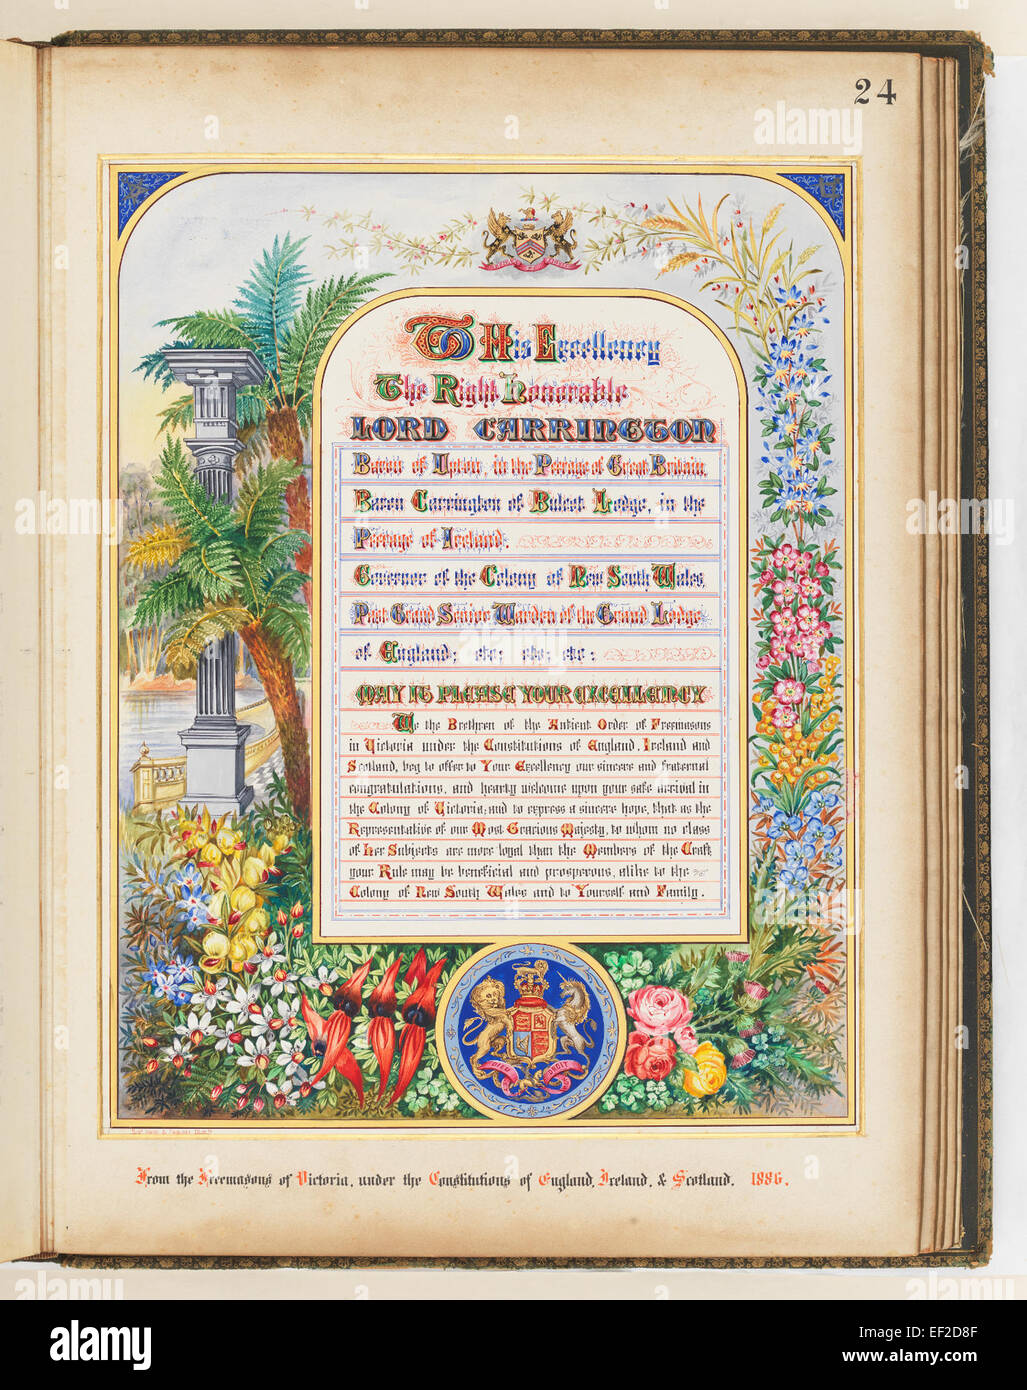 24
To His Excellency
The Right Honorable
LORD CARRINGTON
Baron of Upton, in the Peerage of Great Britain,
Baron Carrington of Bulcot Lodge, in the
Peerage of Ireland.
Governor of the Colony of New South Wales,
Past Grand Senior Warden of the Grand Lodge
of England; etc; etc; etc;
MAY IT PLEASE YOUR EXCELLENCY
We the Brethren of the Antient Order of Freemasons
in Victoria under the Constitutions of England, Ireland and
Scotland, beg to offer to Your Excellency our sincere and fraternal
congratulations, and hearty welcome upon your safe arrival in
the Colony of Victoria; and to express a sincere hope, that as the
Representative of our Most Gracious Majesty, to whom no class
of Her Subjects are more loyal than the Members of the Craft,
your Rule may be beneficial and prosperous, alike to the
Colony of New South Wales and to Yourself and Family.
DIEU DROIT
From the Freemasons of Victoria, under the Constitutions of England, Ireland, & Scotland. 1886.
alamy
Image ID: EF2D8F
www.alamy.com